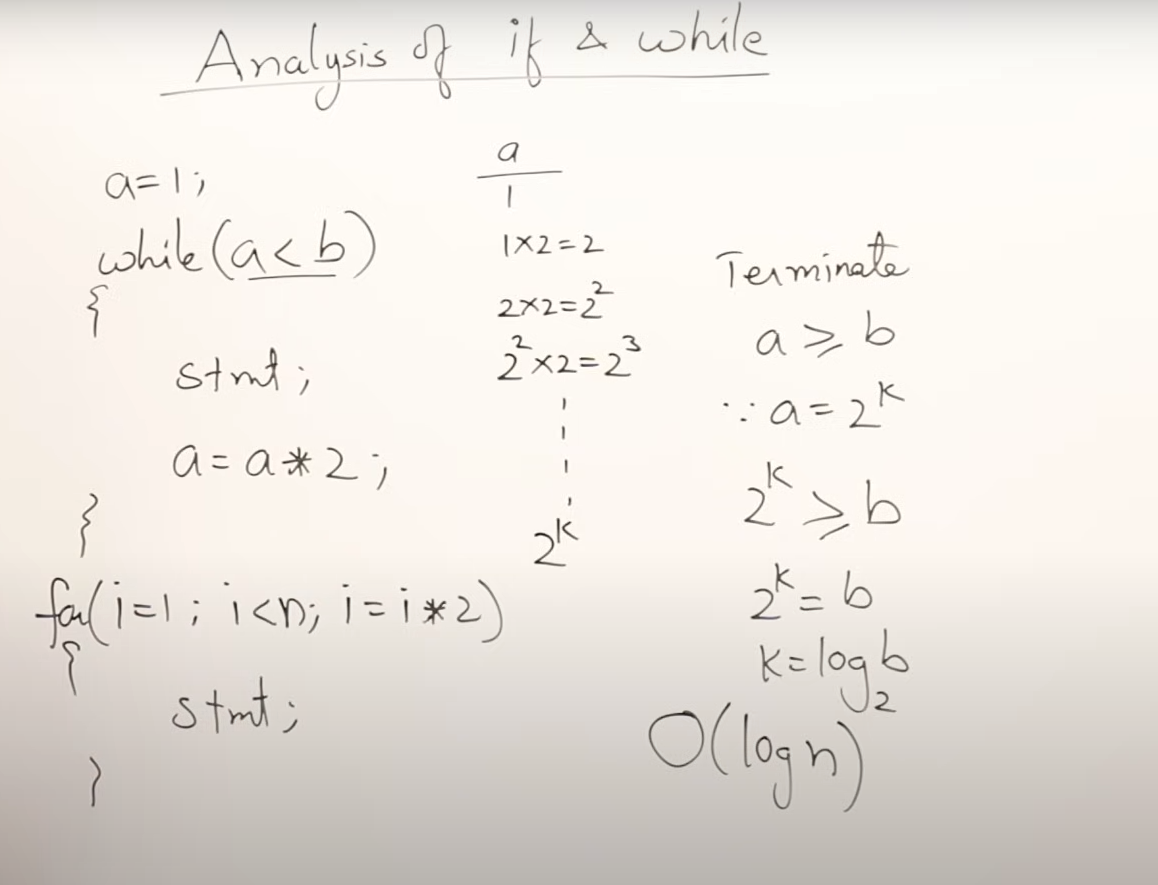 Analysis of if & while
a=1;
while(a<b)
{
stmt;
a=a*2;
}
for(i=1; i<n; i=i*2)
{
stmt;
}
a
1
1×2=2
2×2=2²
2²×2=2³
2ᵏ
Terminate
a≥b
∵ a=2ᵏ
2ᵏ≥b
2ᵏ=b
k=log₂b
O(logn)